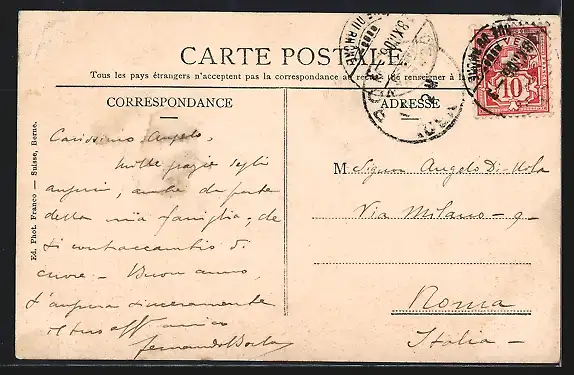 CARTE POSTALE
Tous les pays étrangers n'acceptent pas la correspondance au recto (se renseigner à la
CORRESPONDANCE
ADRESSE
Ed. Phot. Franco — Suisse, Berne.
Carissimo Angelo,
Mille grazie degli
auguri, anche da parte
della mia famiglia, che
ti contraccambio di
cuore — Buon anno,
t'augura sinceramente
il tuo aff amico
Fernando
M. Signor Angelo Di
Via Milano - 9 -
Roma
Italia -
10